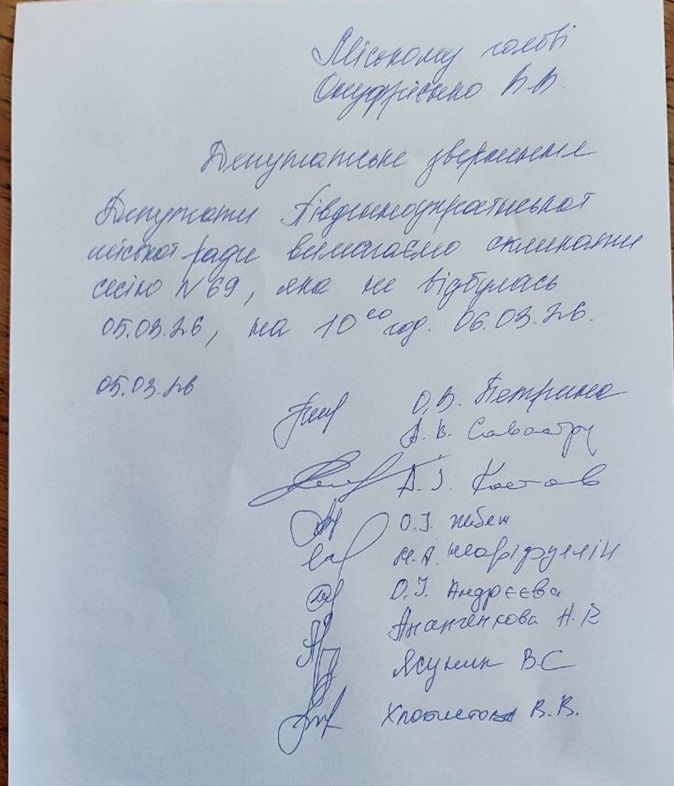 Міському голові
Онуфрієнко В.В.
Депутатське звернення
Депутати Південноукраїнської
міської ради вимагаємо скликати
сесію №69, яка не відбулась
05.03.26, на 10⁰⁰ год. 06.03.26.
05.03.26
О.В. Петрина
А.В.
А.І. Костов
О.І.
М.А.
О.І. Андрєєва
Н.
Ясумик В.С
В.В.